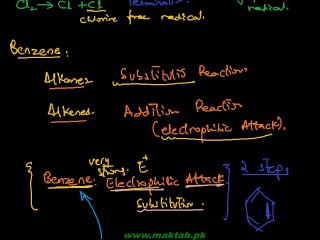 Cl₂ → Cl + Cl Terminatio
Clorine free radical. radical.
Benzene:
Alkanes Substitutis Reaction
Alkenes Addition Reaction
(electrophilic Attack).
very strong. E⁺
Benzene: Electrophilic Attack 2 step
Substitution
www.maktab.pk